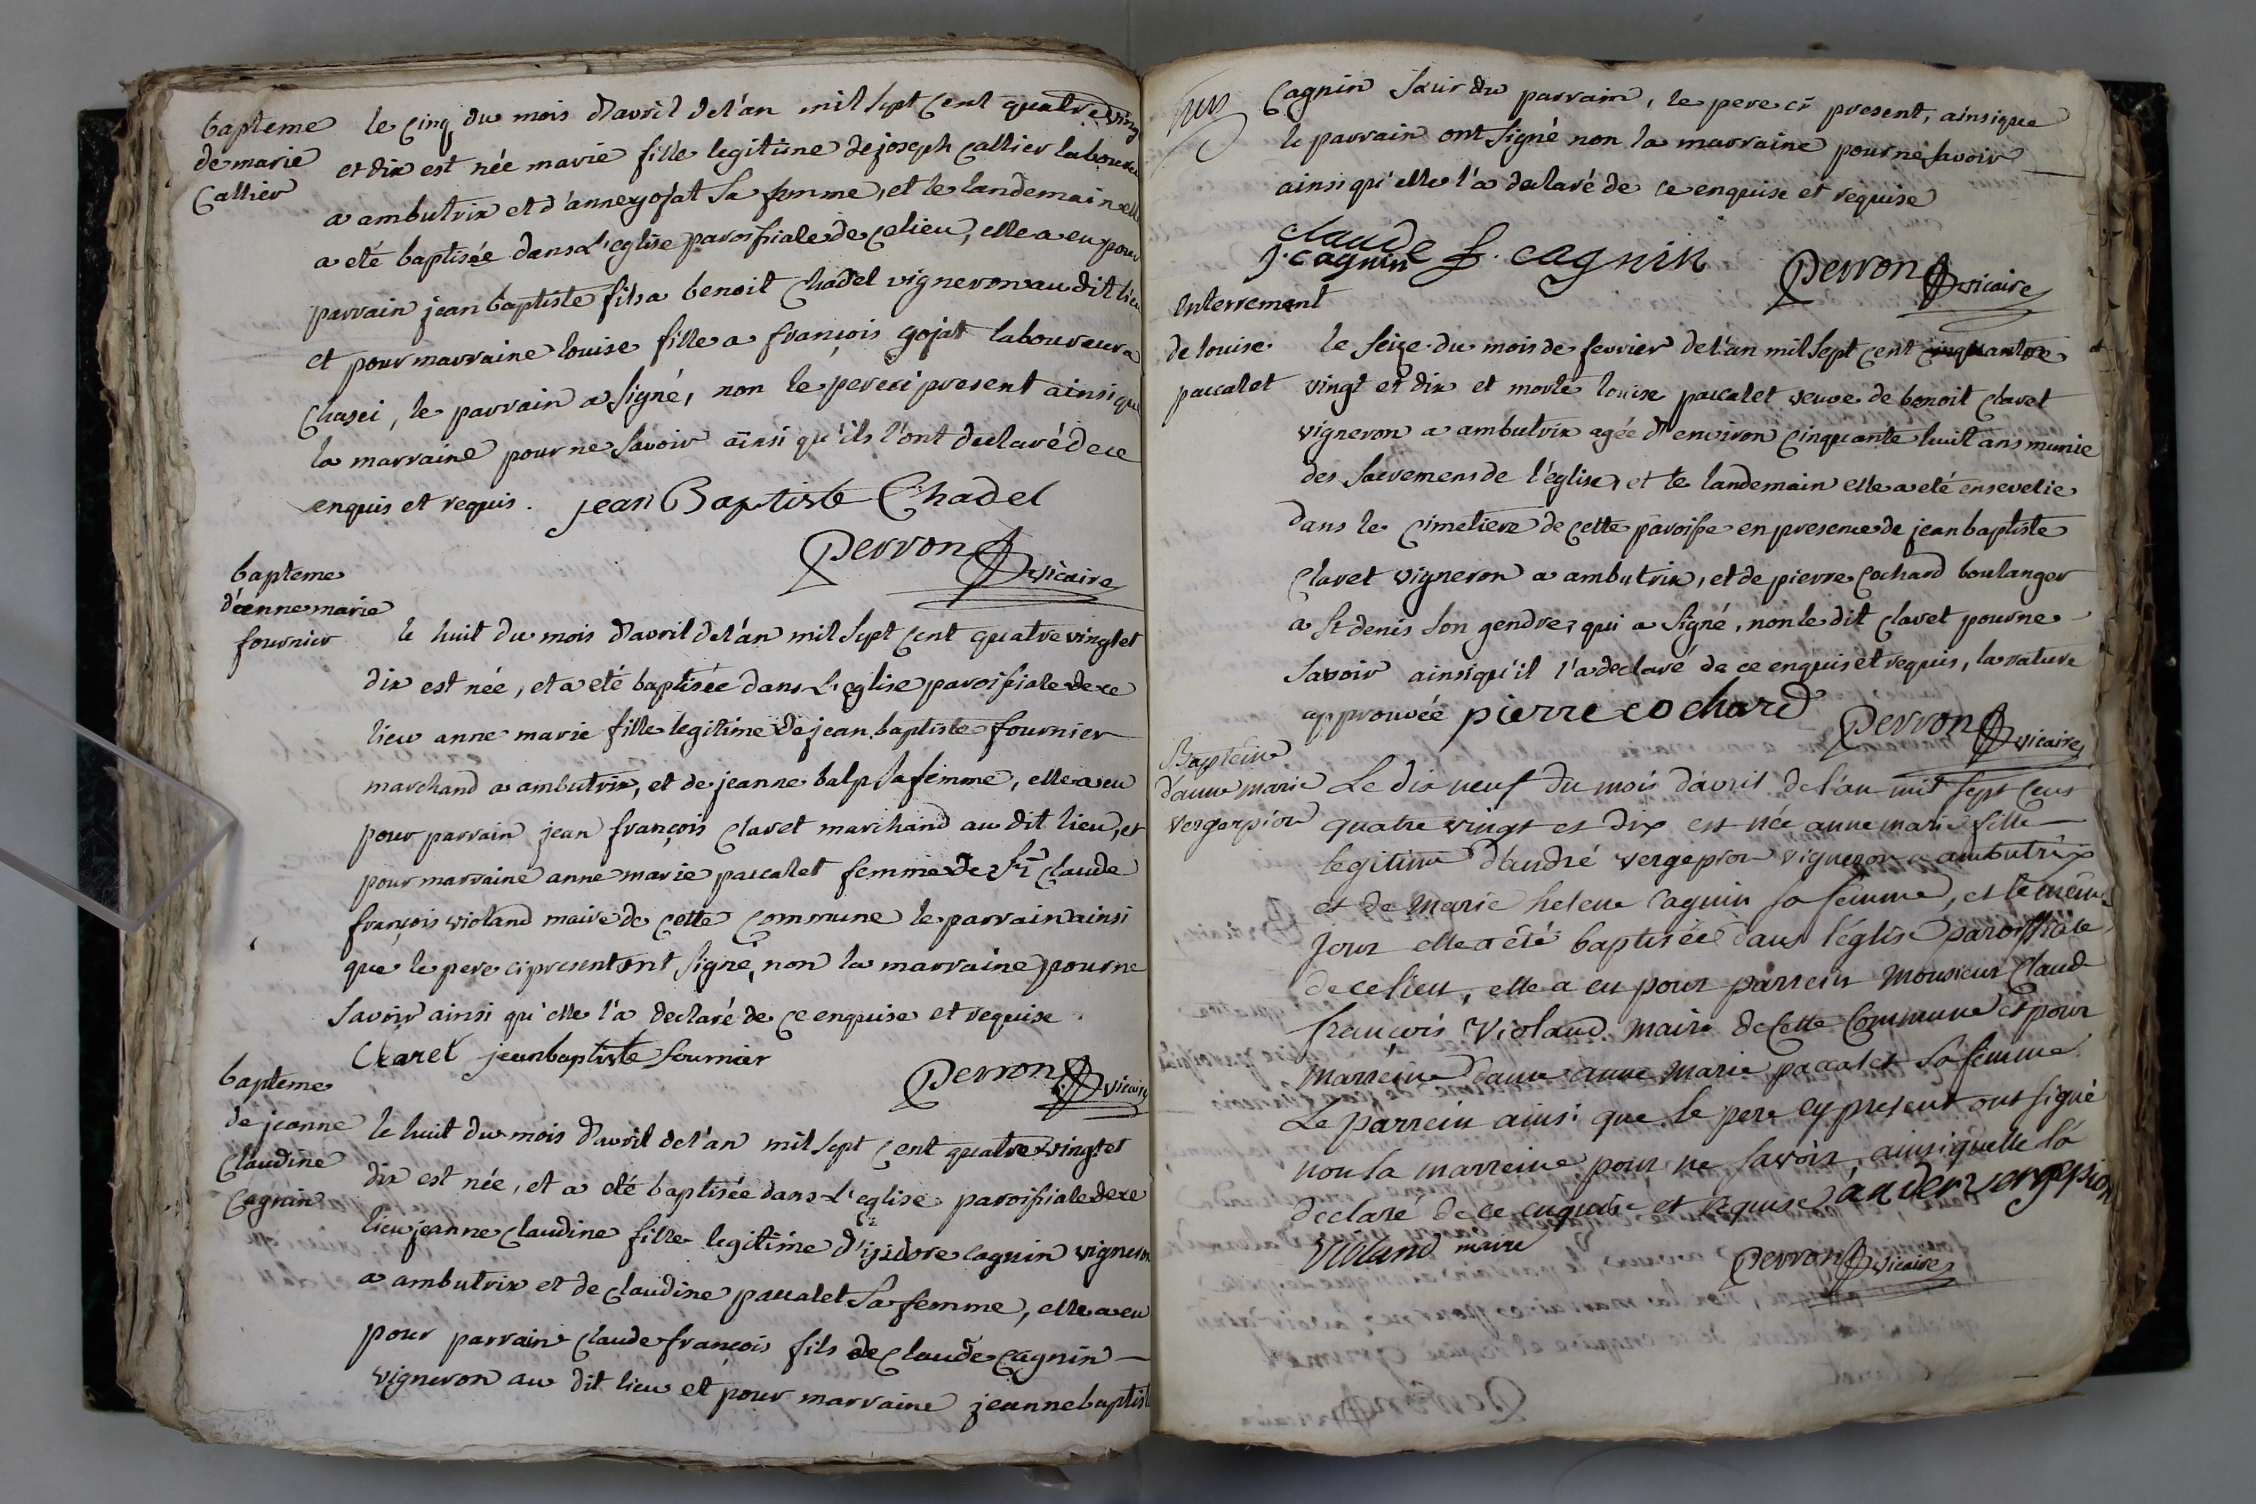 bapteme
de marie
Callier
le cinq du mois d'avril de l'an mil sept cent quatre ving
et dix est née marie fille legitime de joseph callier laboureur
a ambutrix et d'anne gojat sa femme, et le landemain elle
a eté baptisée dans l'eglise paroissiale de ce lieu, elle a eu pour
parrain jean baptiste fils a benoit Chadel vigneron au dit lieu
et pour marraine louise fille a françois gojat laboureur a
Chasei, le parrain a signé, non le pere ci present ainsi que
la marraine pour ne savoir ainsi qu'ils l'ont declaré de ce
enquis et requis. jean Baptiste Chadel
Perron vicaire
bapteme
d'anne marie
fournier
le huit du mois d'avril de l'an mil sept cent quatre vingt et
dix est née, et a eté baptisée dans l'eglise paroissiale de ce
lieu anne marie fille legitime de jean baptiste fournier
marchand a ambutrix, et de jeanne balp sa femme, elle a eu
pour parrain jean françois Claret marchand au dit lieu, et
pour marraine anne marie paccalet femme de Sr Claude
françois violand maire de cette Commune le parrain ainsi
que le pere ci present ont signé, non la marraine pour ne
savoir ainsi qu'elle l'a declaré de ce enquise et requise.
Claret jean baptiste fournier
Perron vicaire
bapteme
de jeanne
Claudine
Cagnin
le huit du mois d'avril de l'an mil sept cent quatre vingt et
dix est née, et a eté baptisée dans l'eglise paroissiale de ce
lieu jeanne Claudine fille legitime d'isidore cagnin vigneron
a ambutrix et de Claudine paccalet sa femme, elle a eu
pour parrain Claude françois fils de Claude Cagnin
vigneron au dit lieu et pour marraine jeanne baptiste
Cagnin sœur du parrain, le pere ci present, ainsi que
le parrain ont signé non la marraine pour ne savoir
ainsi qu'elle l'a declaré de ce enquise et requise
Claude f. cagnin
J. cagnin
Perron vicaire
Interrement
de louise
paccalet
le seize du mois de fevrier de l'an mil sept cent cinquante
vingt et dix et morte louise paccalet veuve de benoit Claret
vigneron a ambutrix agée d'environ cinquante huit ans munie
des sacremens de l'église, et le landemain elle a eté ensevelie
dans le cimetiere de cette paroisse en presence de jean baptiste
Claret vigneron a ambutrix, et de pierre Cochard boulanger
a St denis son gendre, qui a signé, non le dit Claret pour ne
savoir ainsi qu'il l'a declaré de ce enquis et requis, la rature
approuvée pierre cochard
Perron vicaire
Baptême
d'anne marie
vergepion
Le dix neuf du mois d'avril de l'an mil sept cent
quatre vingt et dix est née anne marie fille
legitime d'andré vergepion vigneron a ambutrix
et de marie helene Cagnin sa femme, et le même
jour elle a été baptisée dans l'église paroissiale
de ce lieu, elle a eu pour parrein Monsieur Claud
françois Violand maire de Cette Commune et pour
marreine dame anne marie paccalet sa femme
Le parrein ainsi que le pere cy present ont signé
non la marreine pour ne savoir, ainsi quelle l'a
declaré de ce enquise et requise ander vergepion
Violand maire
Perron vicaire